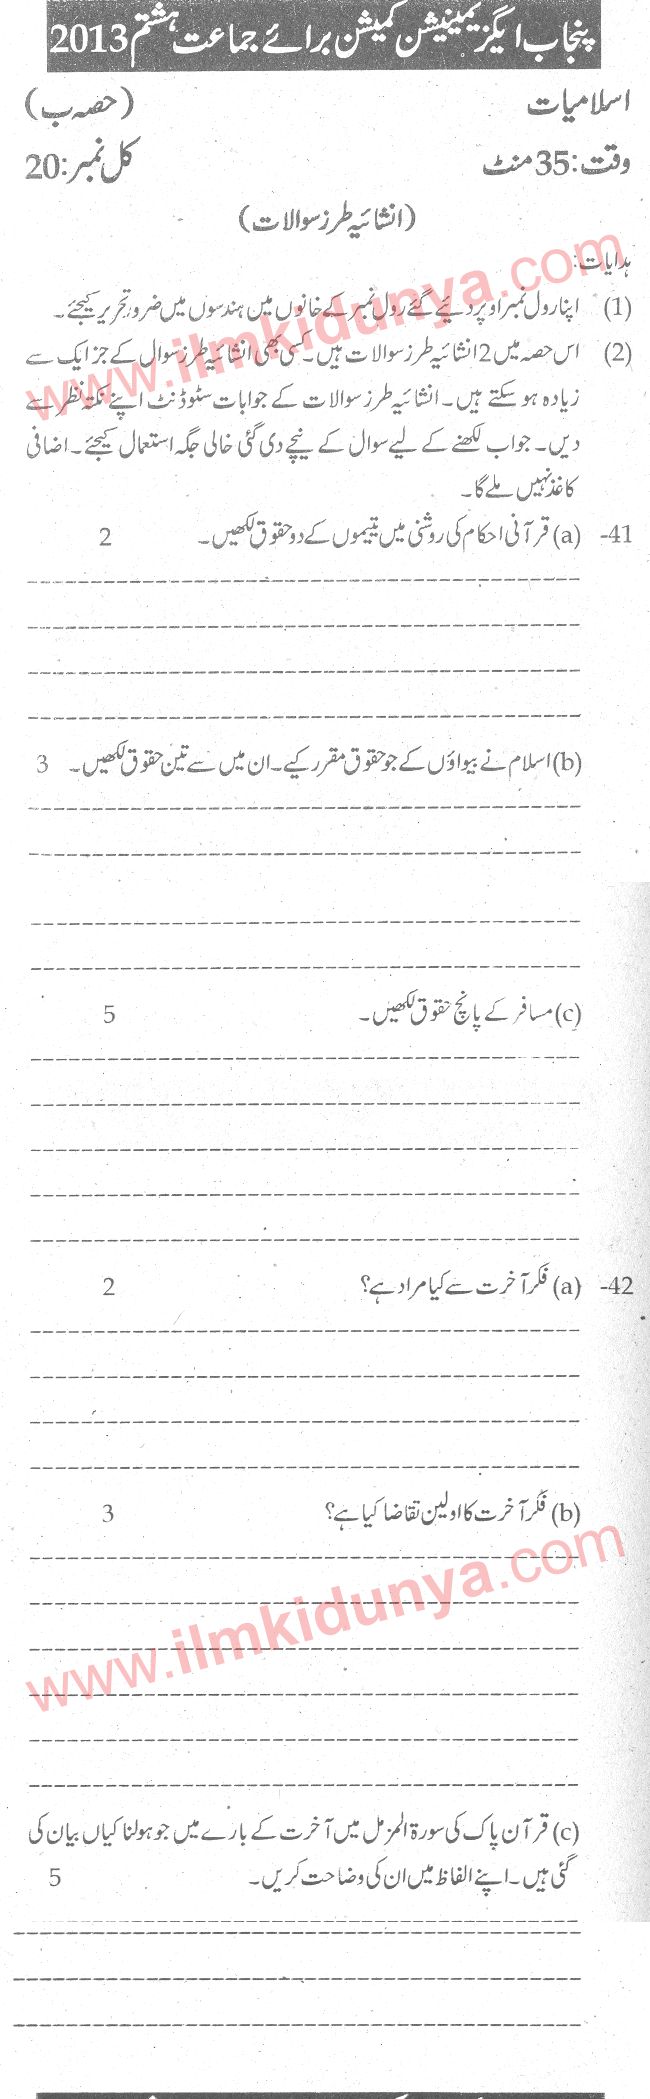 پنجاب ایگزیمینیشن کمیشن برائے جماعت ہشتم 2013
اسلامیات (حصہ ب)
وقت: 35 منٹ کل نمبر: 20
(انشائیہ طرز سوالات)
ہدایات:
(1) اپنا رول نمبر اوپر دئیے گئے رول نمبر کے خانوں میں ہندسوں میں ضرور تحریر کیجئے۔
(2) اس حصہ میں 2 انشائیہ طرز سوالات ہیں۔ کسی بھی انشائیہ طرز سوال کے جز ایک سے
زیادہ ہو سکتے ہیں۔ انشائیہ طرز سوالات کے جوابات سٹوڈنٹ اپنے نکتہ نظر سے
دیں۔ جواب لکھنے کے لیے سوال کے نیچے دی گئی خالی جگہ استعمال کیجئے۔ اضافی
کاغذ نہیں ملے گا۔
41- (a) قرآنی احکام کی روشنی میں یتیموں کے دو حقوق لکھیں۔ 2
(b) اسلام نے بیواؤں کے جو حقوق مقرر کیے۔ ان میں سے تین حقوق لکھیں۔ 3
(c) مسافر کے پانچ حقوق لکھیں۔ 5
42- (a) فکر آخرت سے کیا مراد ہے؟ 2
(b) فکر آخرت کا اولین تقاضا کیا ہے؟ 3
(c) قرآن پاک کی سورۃ المزمل میں آخرت کے بارے میں جو ہولناکیاں بیان کی
گئی ہیں۔ اپنے الفاظ میں ان کی وضاحت کریں۔ 5
www.ilmkidunya.com
www.ilmkidunya.com